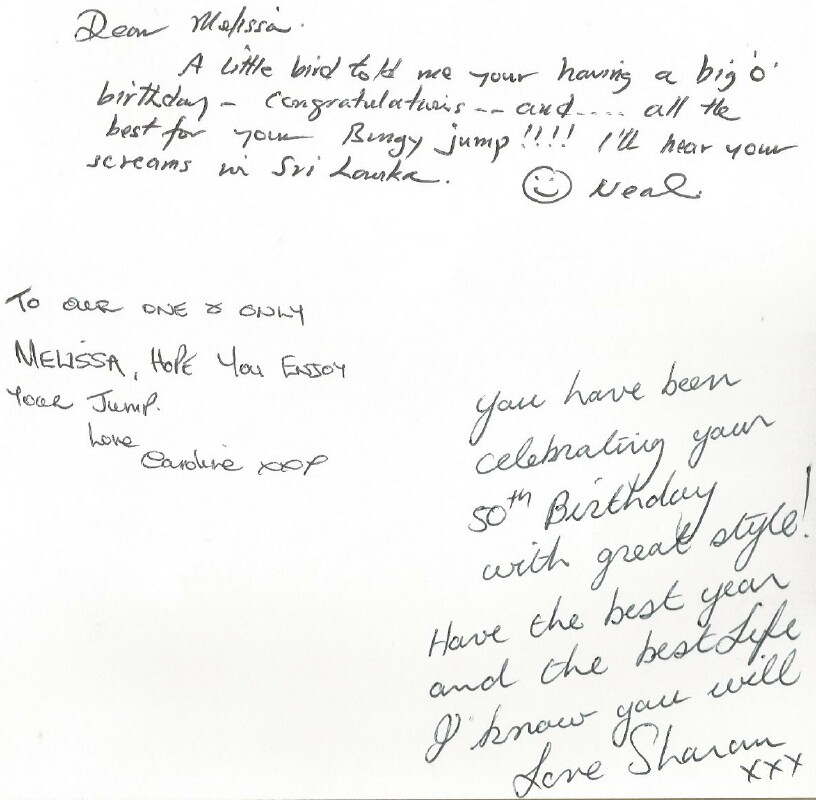 Dear Melissa.
A little bird told me your having a big 'o'
birthday - congratulations -- and.... all the
best for your Bungy jump!!!! I'll hear your
screams in Sri Lanka. Neal.
TO OUR ONE & ONLY
MELISSA, HOPE YOU ENJOY
YOUR JUMP.
Love
Caroline xxx
You have been
celebrating your
50th Birthday
with great style!
Have the best year
and the best Life
I know you will
Love Sharan
xxx